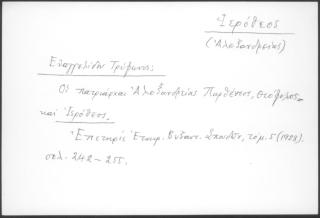 Ἱερόθεος
(Ἀλεξανδρείας)
Εὐαγγελίδου Τρύφωνος:
Οἱ πατριάρχαι Ἀλεξανδρείας Παρθένιος, Θεόφιλος
καὶ Ἱερόθεος.
Ἐπετηρὶς Ἑταιρ. Βυζαντ. Σπουδῶν, τόμ. 5 (1928).
σελ. 242-255.